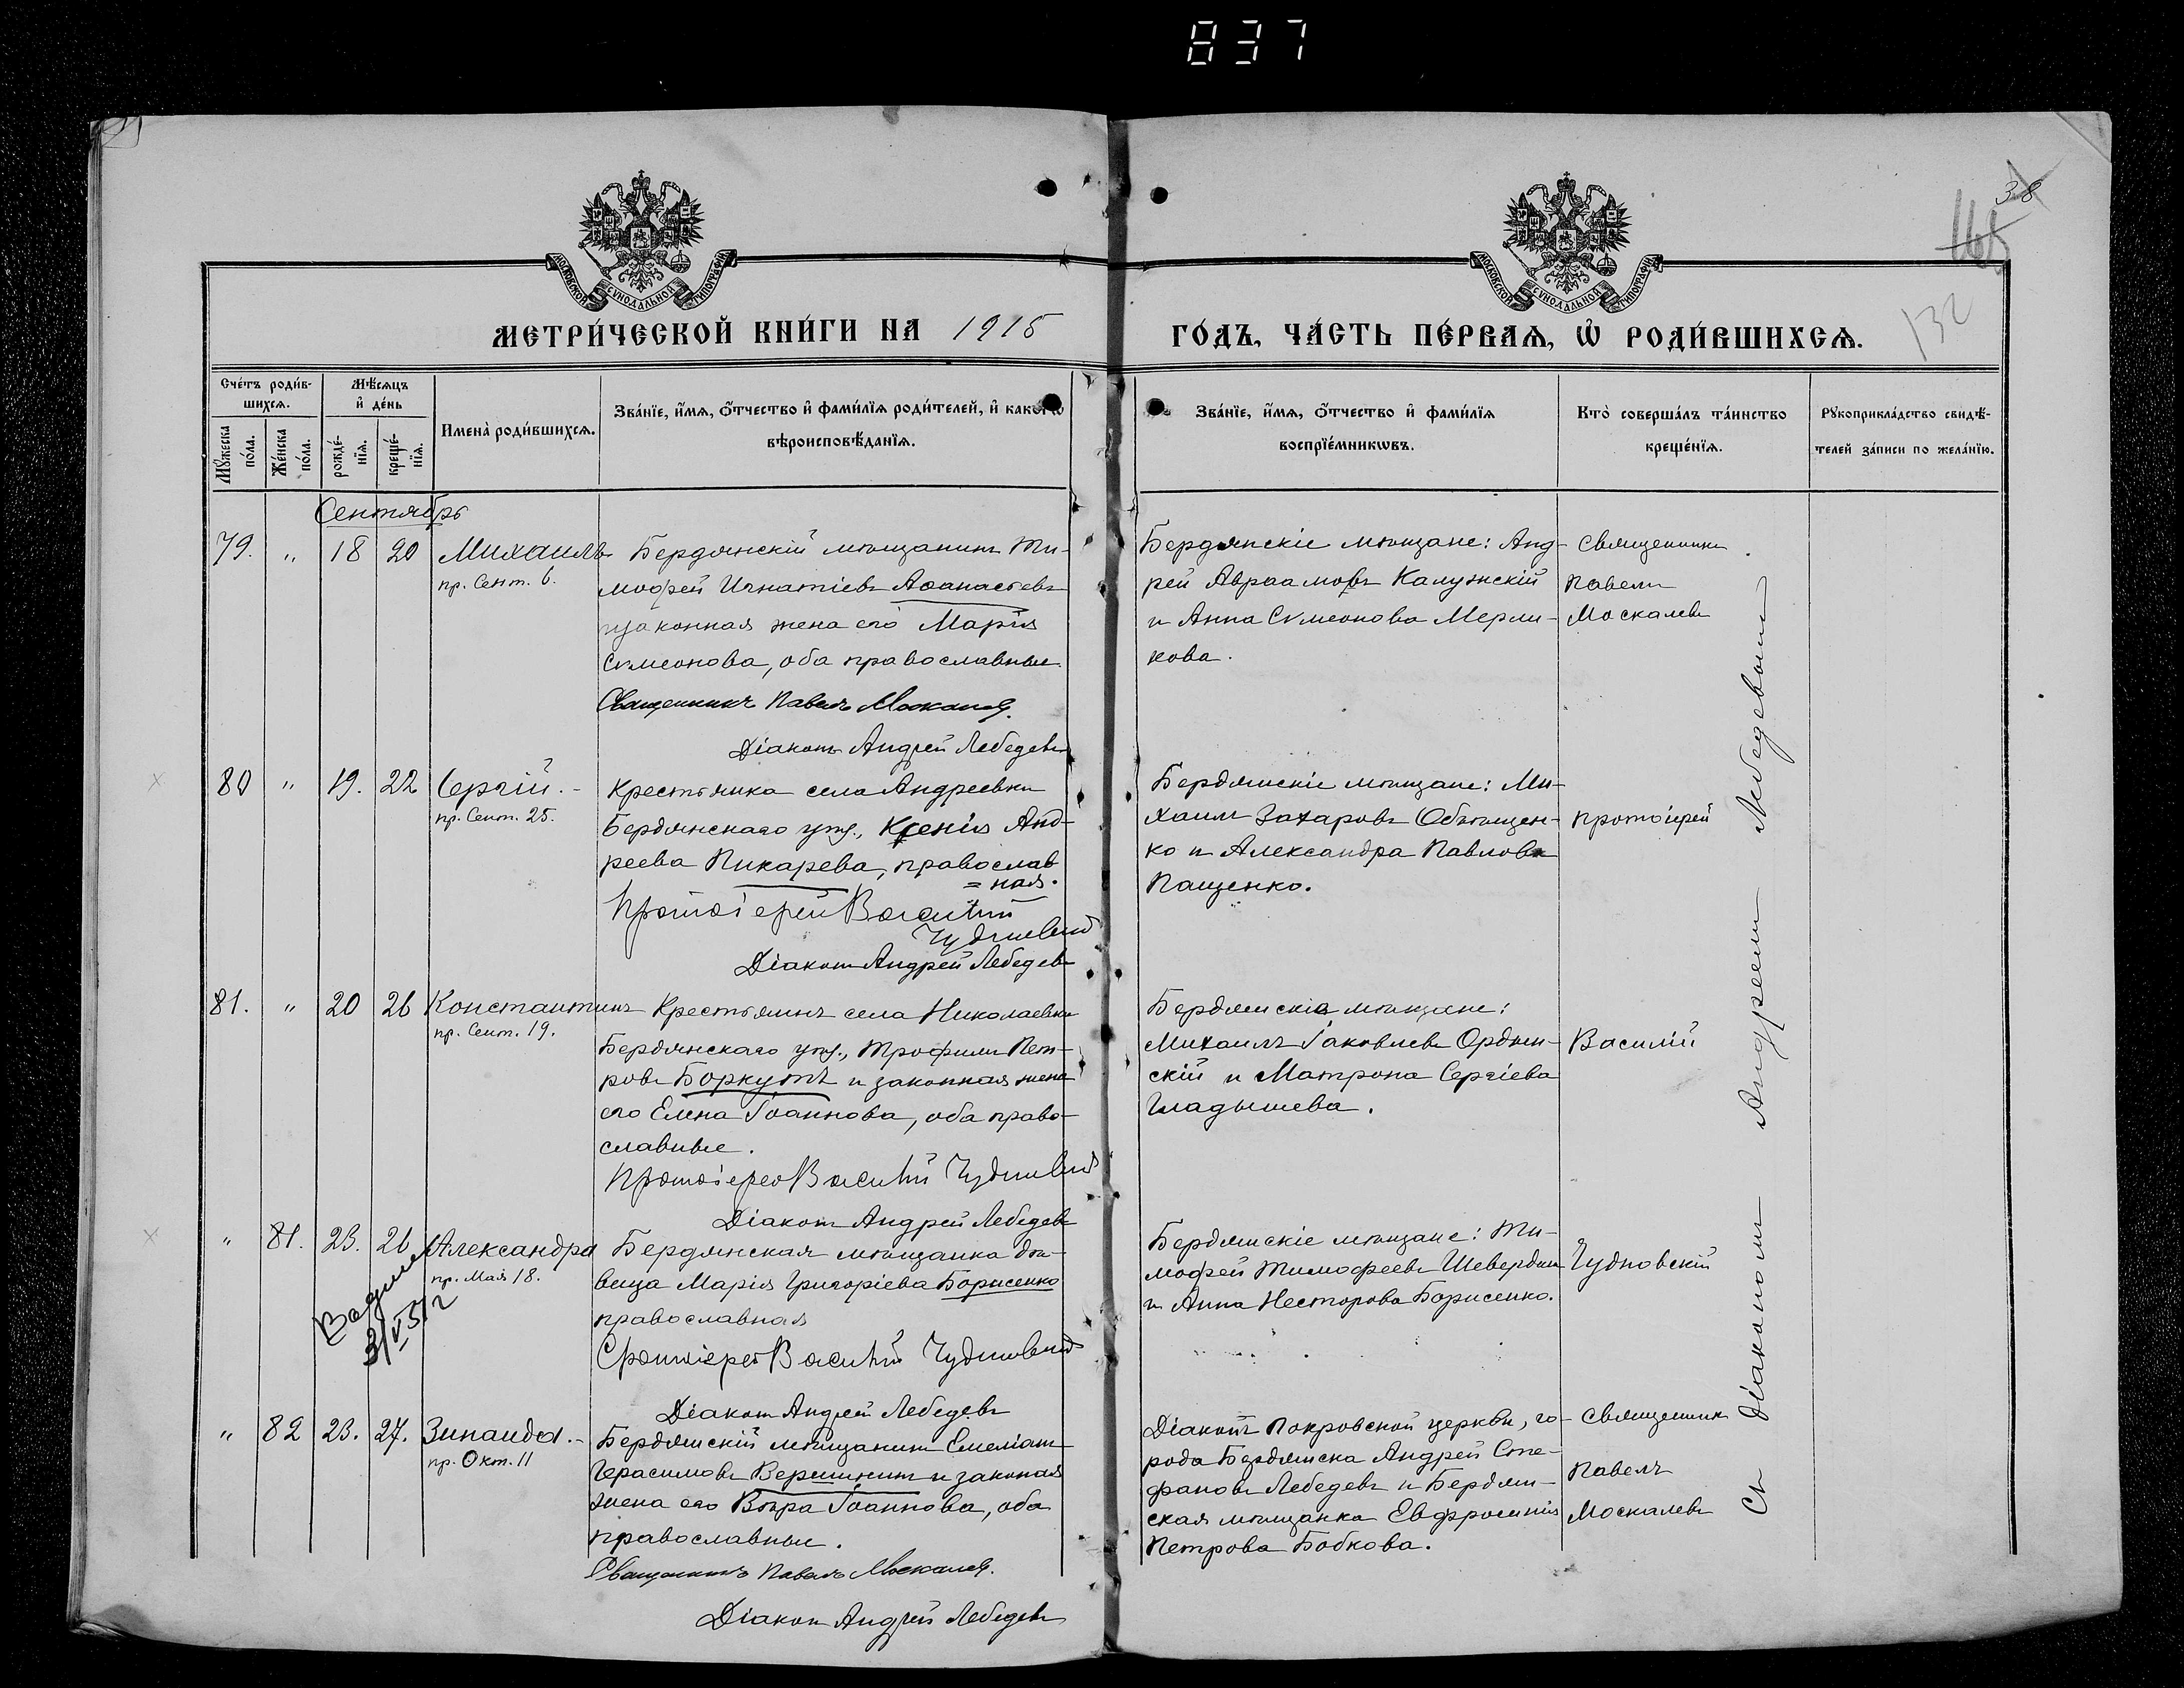 837
38
165
132
МОСКОВСКОЙ СѴНОДАЛЬНОЙ ТИПОГРАФІИ
МОСКОВСКОЙ СѴНОДАЛЬНОЙ ТИПОГРАФІИ
МЕТРИ́ЧЕСКОЙ КНИ́ГИ НА 1915 ГО́ДЪ, ЧА́СТЬ ПЕ́РВАѦ, Ѡ҆ РОДИ́ВШИХСѦ.
Сче́тъ роди́в-
шихсѧ.
Мѣ́сѧцъ
и҆ де́нь
Мꙋ́жеска по́ла.
Же́нска по́ла.
рожде́-
нїѧ.
креще́-
нїѧ.
И҆мена̀ роди́вшихсѧ.
Зва́нїе, и҆́мѧ, ѻ҆́тчество и҆ фами́лїѧ роди́телей, и҆ како́гѡ
вѣроисповѣ́данїѧ.
Зва́нїе, и҆́мѧ, ѻ҆́тчество и҆ фами́лїѧ
воспрїе́мникѡвъ.
Кто̀ соверша́лъ та́инство
креще́нїѧ.
Рꙋкоприкла́дство свидѣ́-
телей за́писи по жела́нїю.
Сентябрь
79. " 18 20 Михаилъ
пр. Сент. 6.
Бердянскій мѣщанинъ Ти-
мофей Игнатіевъ Аѳанасьевъ
и законная жена его Марія
Сѵмеонова, оба православные.
Священникъ Павелъ Москалев.
Діаконъ Андрей Лебедевъ
Бердянскіе мѣщане: Анд-
рей Авраамовъ Калужскій
и Анна Сѵмеонова Мерли-
кова.
Священникъ
Павелъ
Москалевъ
80 " 19. 22 Сергій.-
пр. Сент. 25.
Крестьянка села Андреевки
Бердянскаго уѣз., Ксенія Анд-
реева Пикарева, православ
=ная.
Протоіерей Василій
Чудновскій
Діаконъ Андрей Лебедевъ
Бердянскіе мѣщане: Ми-
хаилъ Захаровъ Обѣщен-
ко и Александра Павлова
Пащенко.
Протоіерей
81. " 20 26 Константинъ
пр. Сент. 19.
Крестьянинъ села Николаевки
Бердянскаго уѣз., Трофимъ Пет-
ровъ Боркутъ и законная жена
его Елена Іоаннова, оба право-
славные.
Протоіерей Василій Чудновскій
Діаконъ Андрей Лебедевъ
Бердянскіе мѣщане:
Михаилъ Іаковлевъ Ордын-
скій и Матрона Сергіева
Гладышева.
Василій
" 81. 23. 26 Александра
пр. Мая 18.
Бердянская мѣщанка дѣ-
вица Марія Григоріева Борисенко
православная
Протоіерей Василій Чудновскій
Діаконъ Андрей Лебедевъ
Бердянскіе мѣщане: Ти-
мофей Тимофеевъ Шевердин
и Анна Несторова Борисенко.
Чудновскій
" 82 23. 27. Зинаида.-
пр. Окт. 11
Бердянскій мѣщанинъ Емеліанъ
Герасимовъ Вершининъ и законая
жена его Вѣра Іоаннова, оба
православные.
Священникъ Павелъ Москалев.
Діаконъ Андрей Лебедевъ
Діаконъ Покровской церкви, го-
рода Бердянска Андрей Сте-
фановъ Лебедевъ и Бердян-
ская мѣщанка Евфросинія
Петрова Бобкова.
Священникъ
Павелъ
Москалевъ
Съ Діакономъ Андреемъ Лебедевымъ